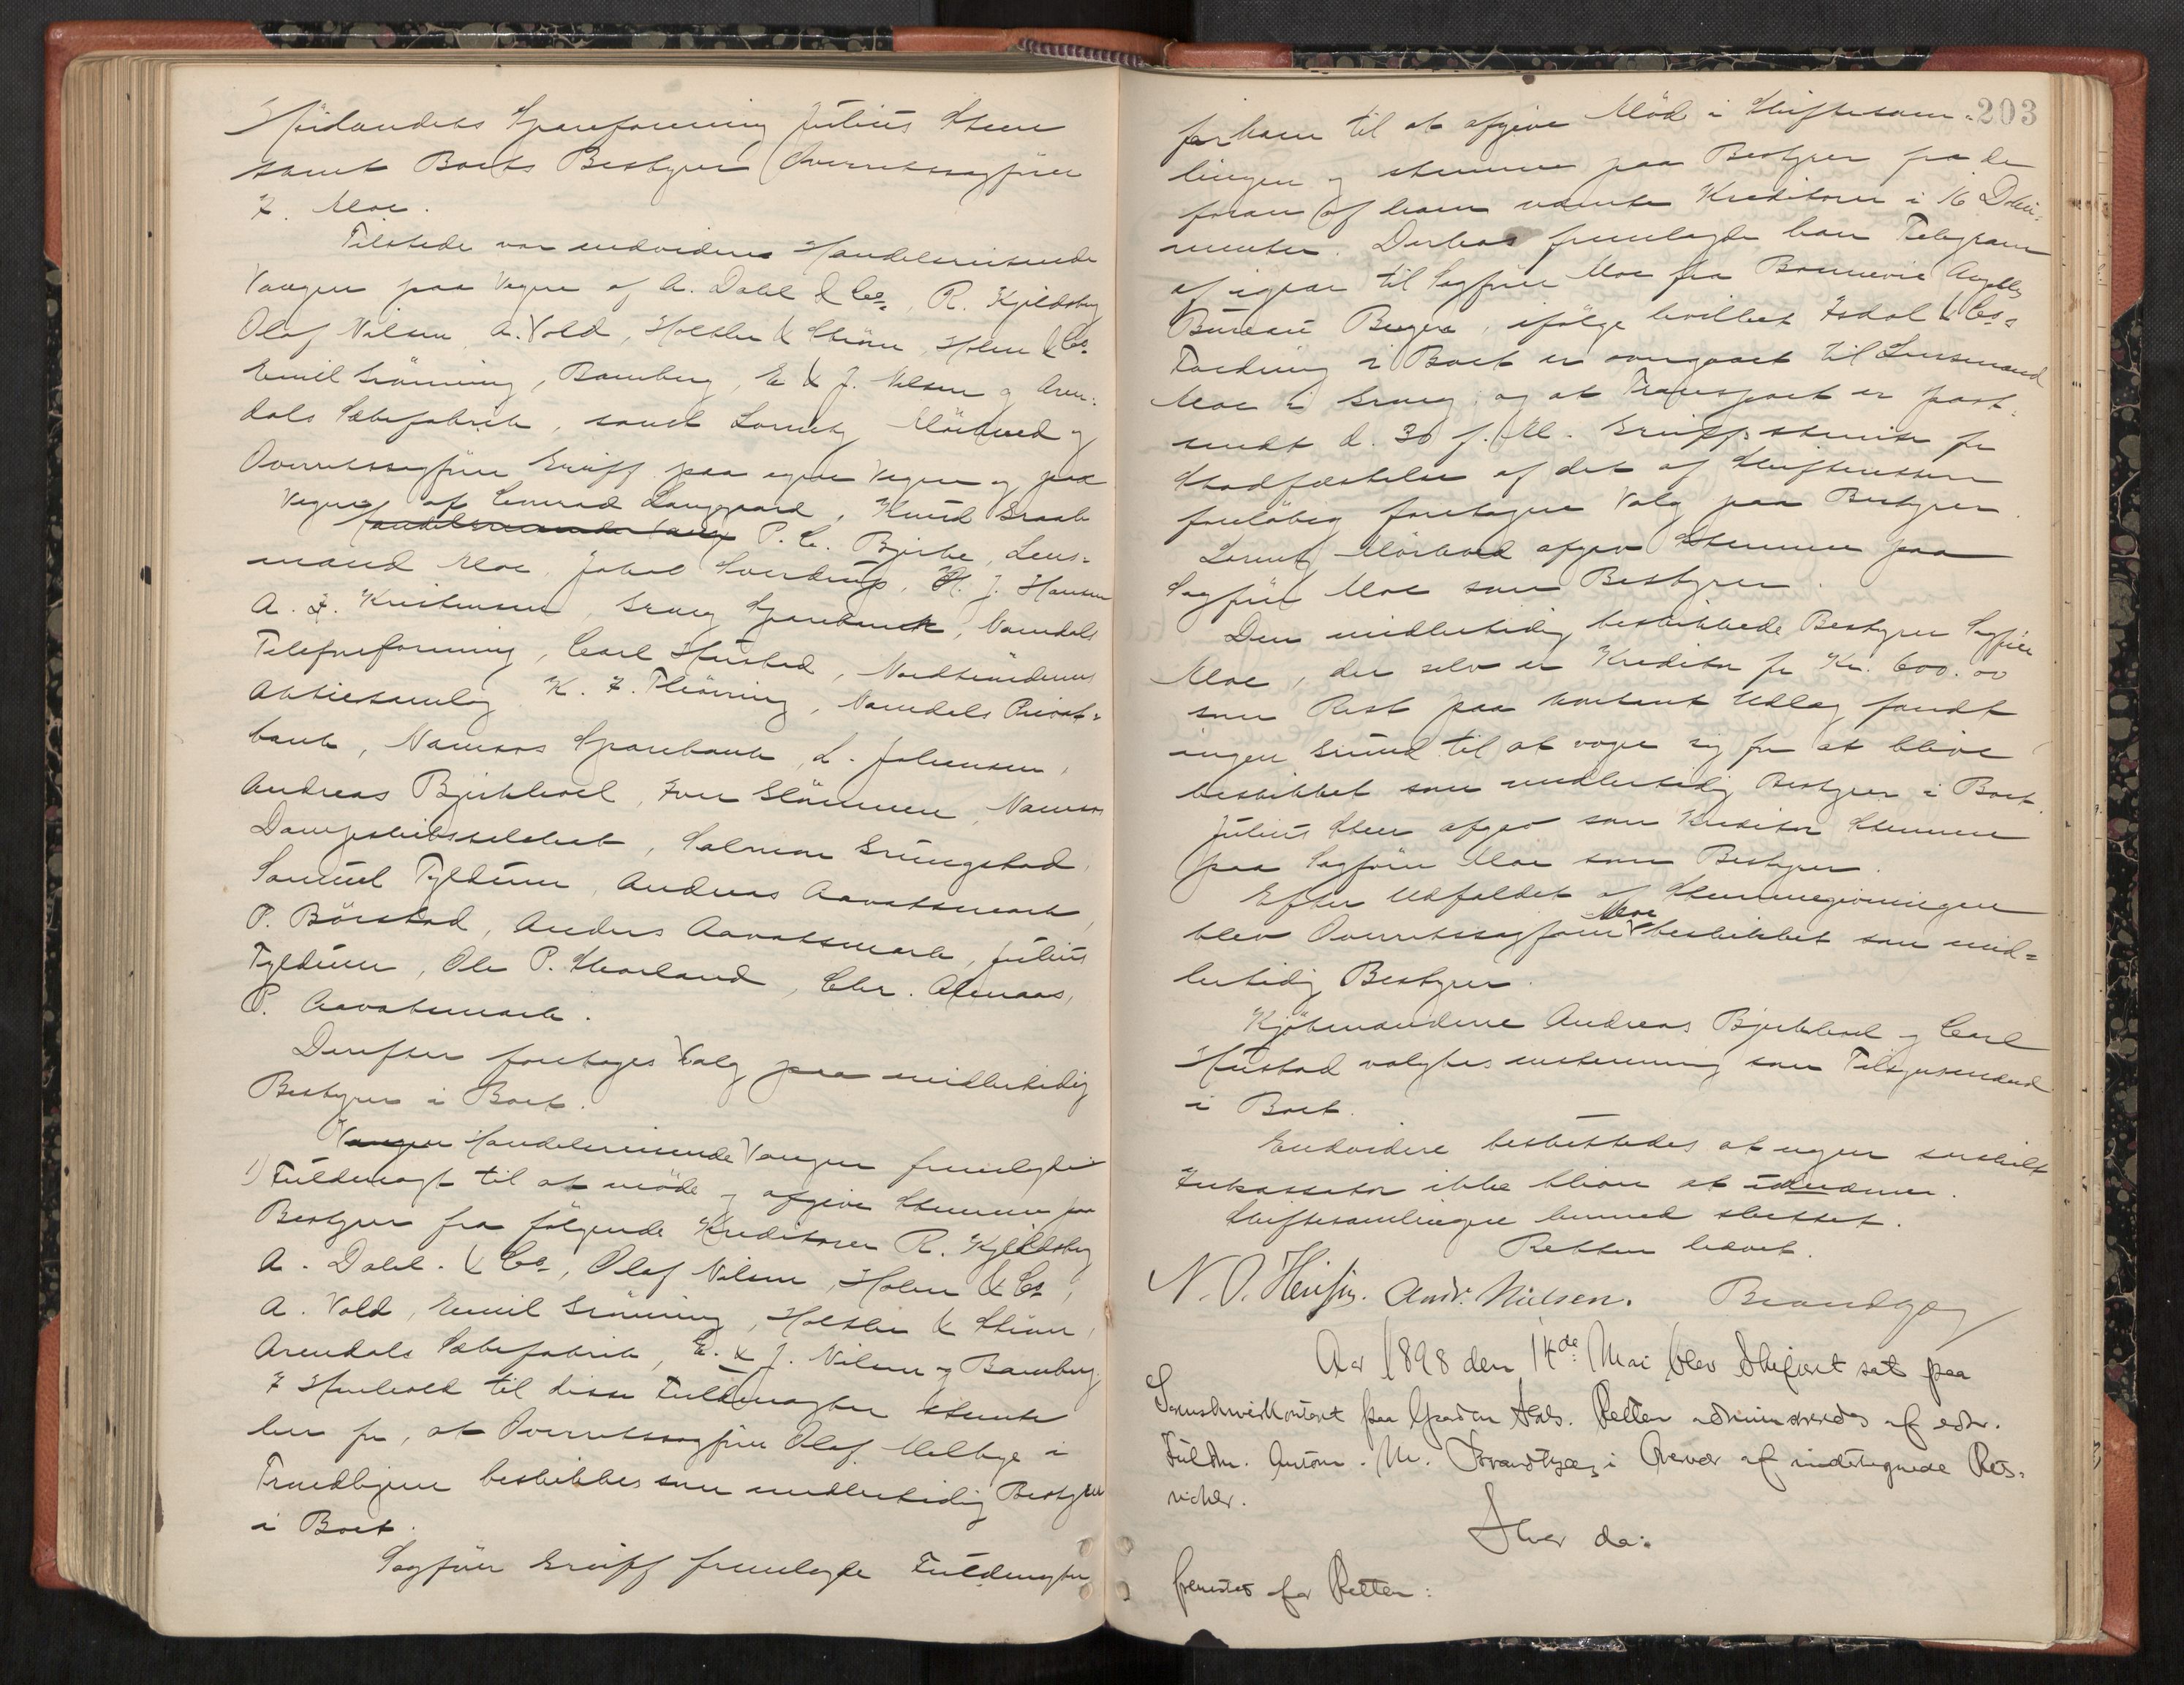 Hölandets Spareforening Julius Steen
samt Boets Bestyrer Overretssagförer
F. Moe.
Tilstede var endvidere Handelsreisende
Vangen paa Vegne af A. Dahl & Co, R. Kjeldsberg
Olaf Nilsen, A. Vold, Holtler & Ström, Holm & Co
Emil Grönning, Bamberg, E & J. Nilsen og Aren-
dals Sæbefabrik, samt Lorentz Mörtved og
Overretssagförer Grüff paa egne Vegne og paa
Vegne af Conrad Langgaard, Knud Graah
P. C. Birke, Lens-
mand Moe, Jakob Sverdrup, H. J. Hansen
A. F. Kristensen, Grong Sparebank, Namdals
Telefonforening, Carl Hustad, Nordtrönderens
Aktiesamlag K. F. Thönning, Namdals Privat-
bank, Namsos Sparebank, L. Johansen,
Andreas Bjerkhoel, Iver Glömmen, Namsos
Dampskibsselskab, Salmon Grungstad,
Samuel Tyldum, Andreas Aavatsmark,
P. Börstad, Anders Aavatsmark, Julius
Tyldum, Ole P. Skarland, Chr. Almaas,
P. Aavatsmark.
Derefter foretages Valg paa midlertidig
Bestyrer i Boet.
Vangen Handelsreisende Vangen fremlagde
1) Fuldmagt til at möde og afgive Stemme paa
Bestyrer fra følgende Kreditorer R. Kjeldsberg
A. Dahl & Co, Olaf Nilsen, Holm & Co,
A. Vold, Emil Grönning, Holtler & Ström,
Arendals Sæbefabrik, E. & J. Nilsen og Bamberg.
I Henhold til disse Fuldmagter stemte
han for, at Overretssagförer Olaf Melbye i
Trondhjem beskikkes som midlertidig Bestyrer
i Boet.
Sagförer Grüff fremlagde Fuldmagter
203
for ham til at afgive Möd i Skiftesam-
lingen og stemme paa Bestyrer fra de
foran af ham nævnte Kreditorer i 16 Doku-
menter. Derhos fremlagde han Telegram
af igaar til Sagförer Moe fra Bonnevie Angells
Bureau Bergen, ifölge hvilket Isdal & Cos
Fordring i Boet er overgaaet til Lensmand
Moe i Grong, og at Transport er post-
sendt d. 30 f. M. Grüff stemte for
Stadfæstelse af det af Skifteretten
foreløbig foretagne Valg paa Bestyrer.
Lorentz Mörtved afgav Stemme paa
Sagförer Moe som Bestyrer.
Den midlertidig beskikkede Bestyrer Sagförer
Moe, der selv er Kreditor for Kr. 600.00
som Rest paa kontant Udlæg, fandt
ingen Grund til at vægre sig for at blive
beskikket som midlertidig Bestyrer i Boet.
Julius Steen afgav som Kreditor Stemme
paa Sagförer Moe som Bestyrer.
Efter Udfaldet af Stemmegivningen
blev Overretssagförer Moe beskikket som mid-
lertidig Bestyrer.
Kjöbmændene Andreas Bjerkhoel og Carl
Hustad valgtes enstemmig som Tilsynsmænd
i Boet.
Endvidere besluttedes at nogen særskilt
Inkassator ikke bliver at udnævne.
Skiftesamlingen hermed sluttet.
Retten hævet.
N. O. Andr. Nielsen. Brandtzæg
Aar 1898 den 14de Mai blev Skifteret sat paa
Sorenskriverkontoret paa Gaarden Hals. Retten administreredes af edsv.
Fuldm. Anton. M. Brandtzæg i Overvær af undertegnede Rets-
vidner.
Hvor da:
foretoges for Retten: